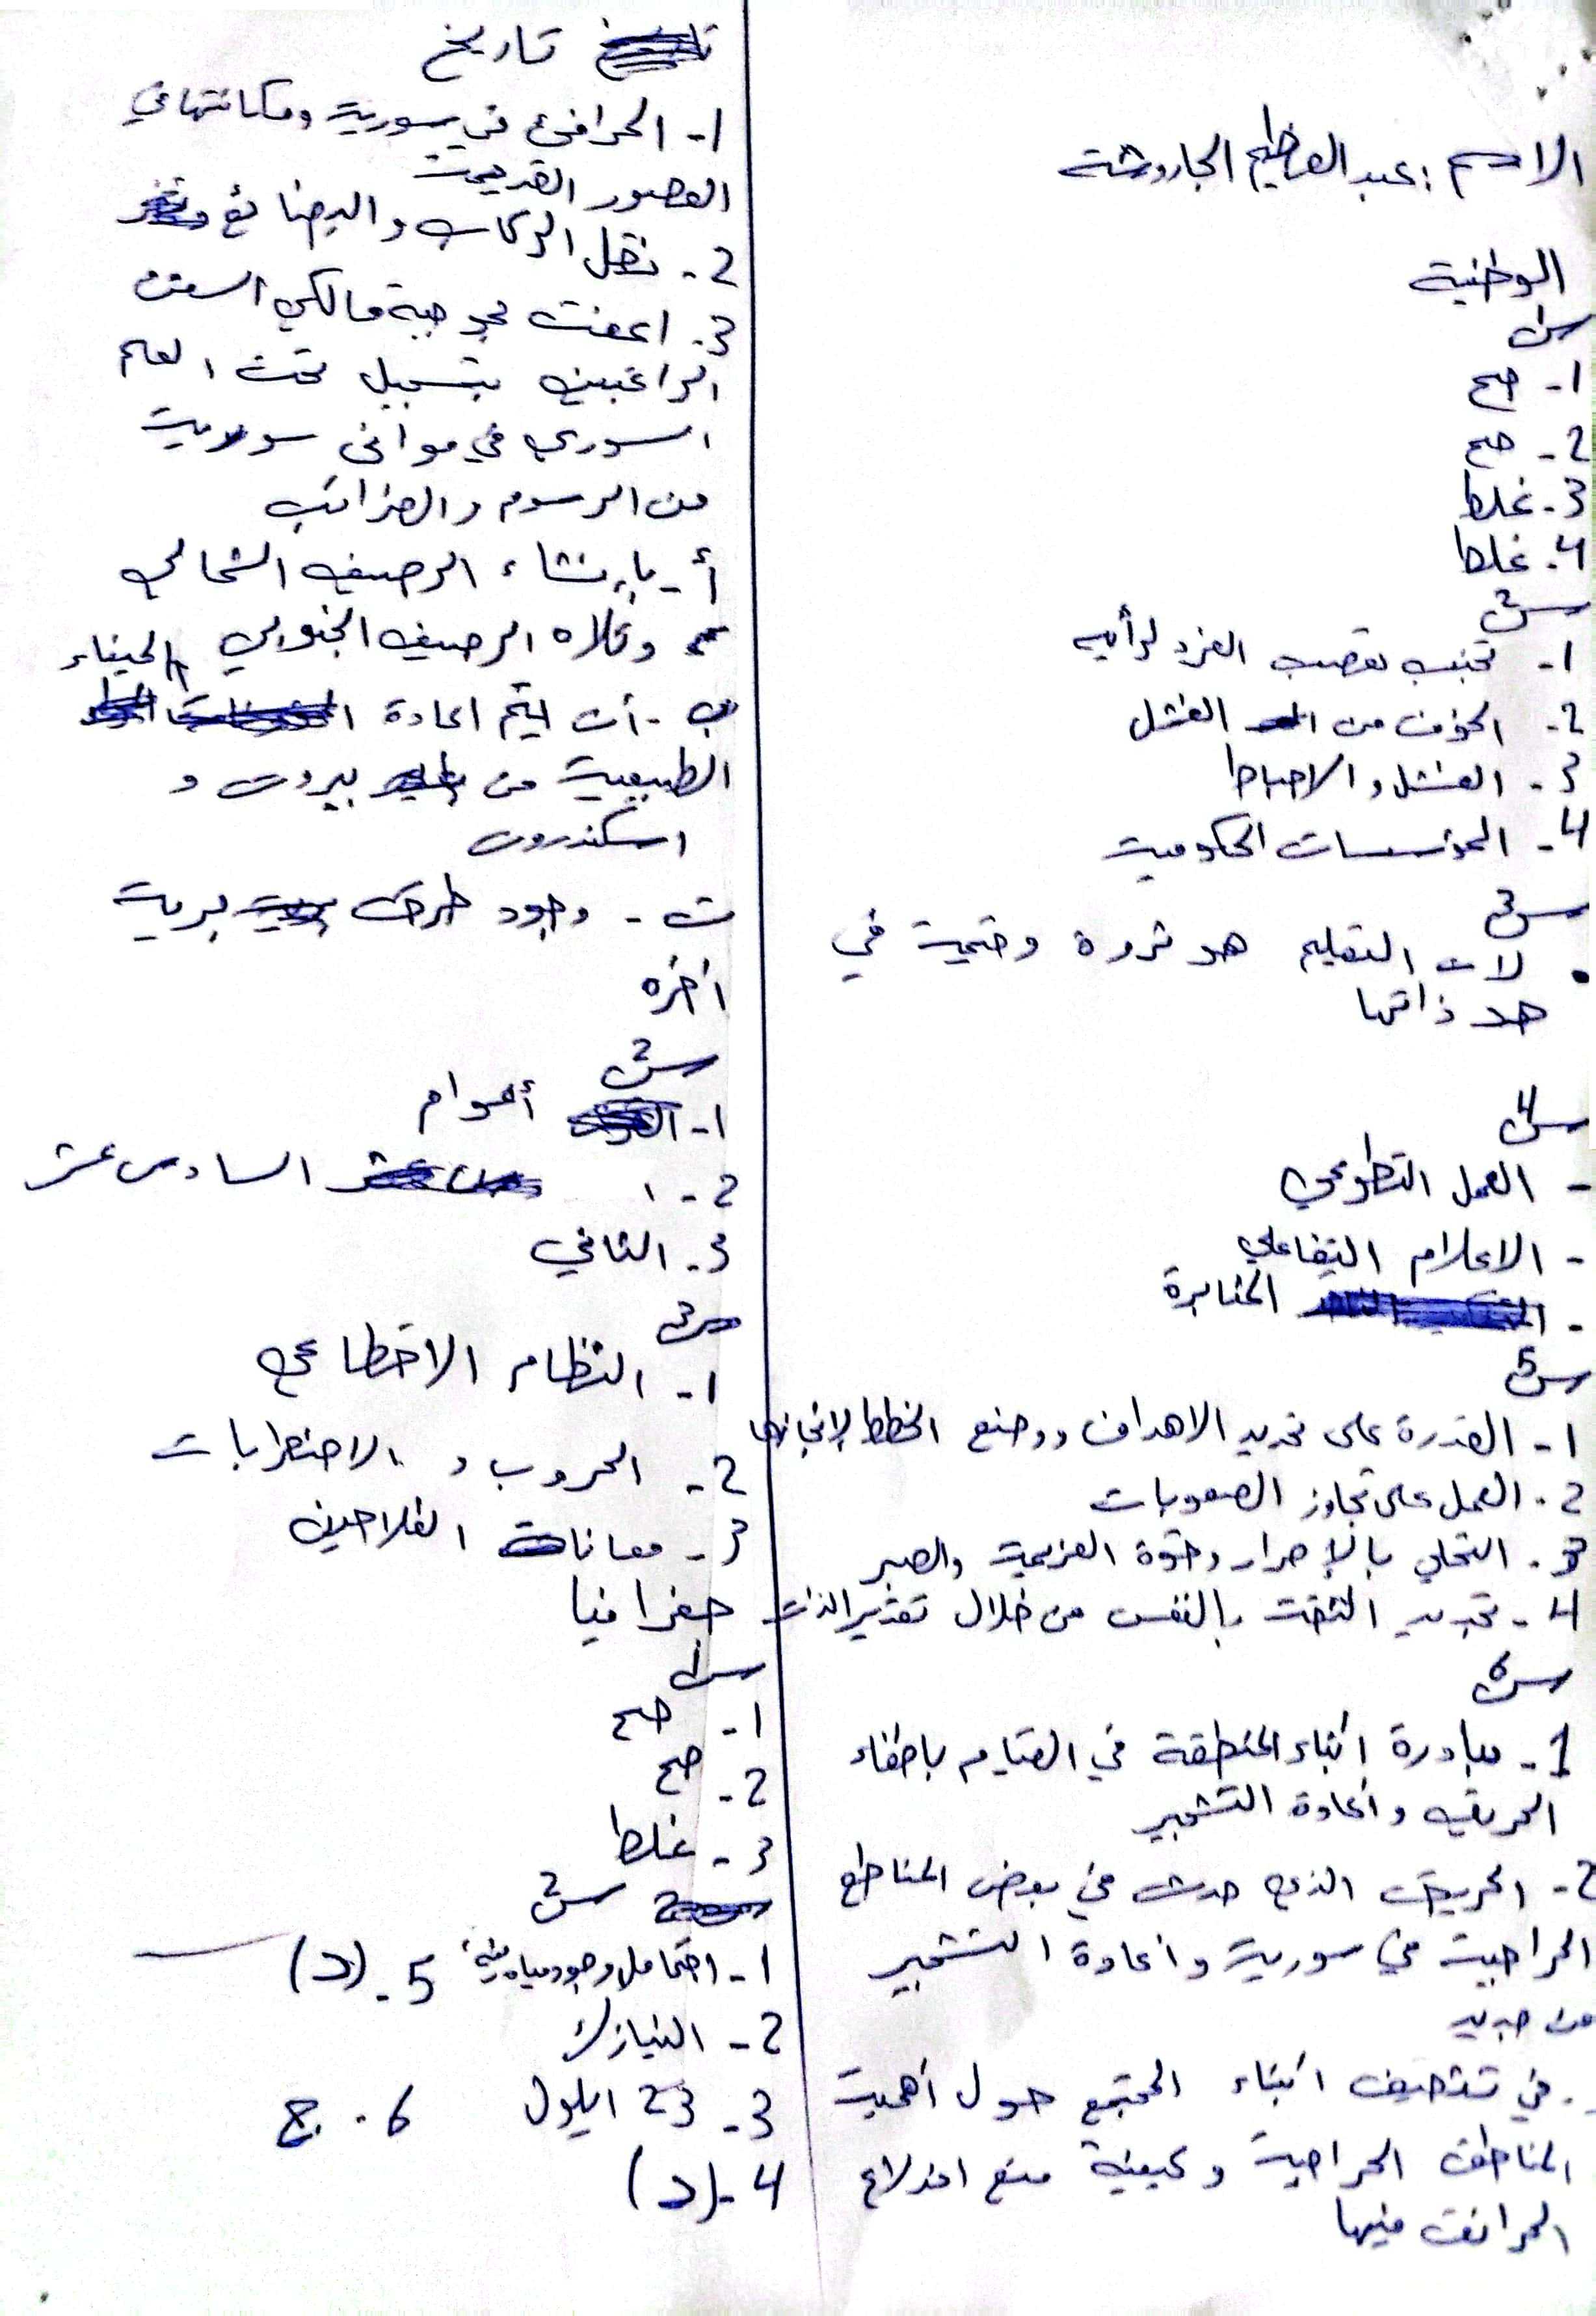 الاسم : عبد العظيم الجاروشة
الوطنية
س1
1- صح
2- صح
3- غلط
4- غلط
س2
1- تجنب تعصب الفرد لرأيه
2- الخوف من الفشل
3- الفشل والاحباط
4- المؤسسات الحكومية
س3
• لان التعليم هو ثروة وقيمة في
حد ذاتها
س4
- العمل التطوعي
- الاعلام التفاعلي
- المثابرة
س5
1- القدرة على تحديد الاهداف ووضع الخطط لإنجازها
2- العمل على تجاوز الصعوبات
3- التحلي بالإصرار وقوة العزيمة والصبر
4- تجديد الثقة بالنفس من خلال تقدير الذات
س6
1- مبادرة ابناء المنطقة في القيام باطفاء
الحريق و اعادة التشجير
2- الحريق الذي حدث في بعض المناطق
الحراجية في سورية و اعادة التشجير
من جديد
. في تثقيف ابناء المجتمع حول اهمية
المناطق الحراجية و كيفية منع اندلاع
الحرائق فيها
تاريخ
1- المرافئ في سورية ومكانتها في
العصور القديمة
2- نقل الركاب و البضائع
3- اعفت بموجبه مالكي السفن
الراغبين بتسجيل تحت العلم
السوري في موانئ سورية
من الرسوم و الضرائب
أ- بإنشاء الرصيف الشمالي
وتلاه الرصيف الجنوبي الميناء
ب- أن يتم اعادة
الطبيعية من بيروت و
اسكندرون
ت- وجود طرق برية
اخره
س2
1- أعوام
2- السادس عشر
3- الثاني
س3
1- النظام الاقطاعي
2- الحروب و الاضطرابات
3- معانات الفلاحين
جغرافيا
س1
1- صح
2- صح
3- غلط
س2
1- احتمال وجود مياه 5- (د)
2- النيازك
3- 23 ايلول 6- ج
4- (د)